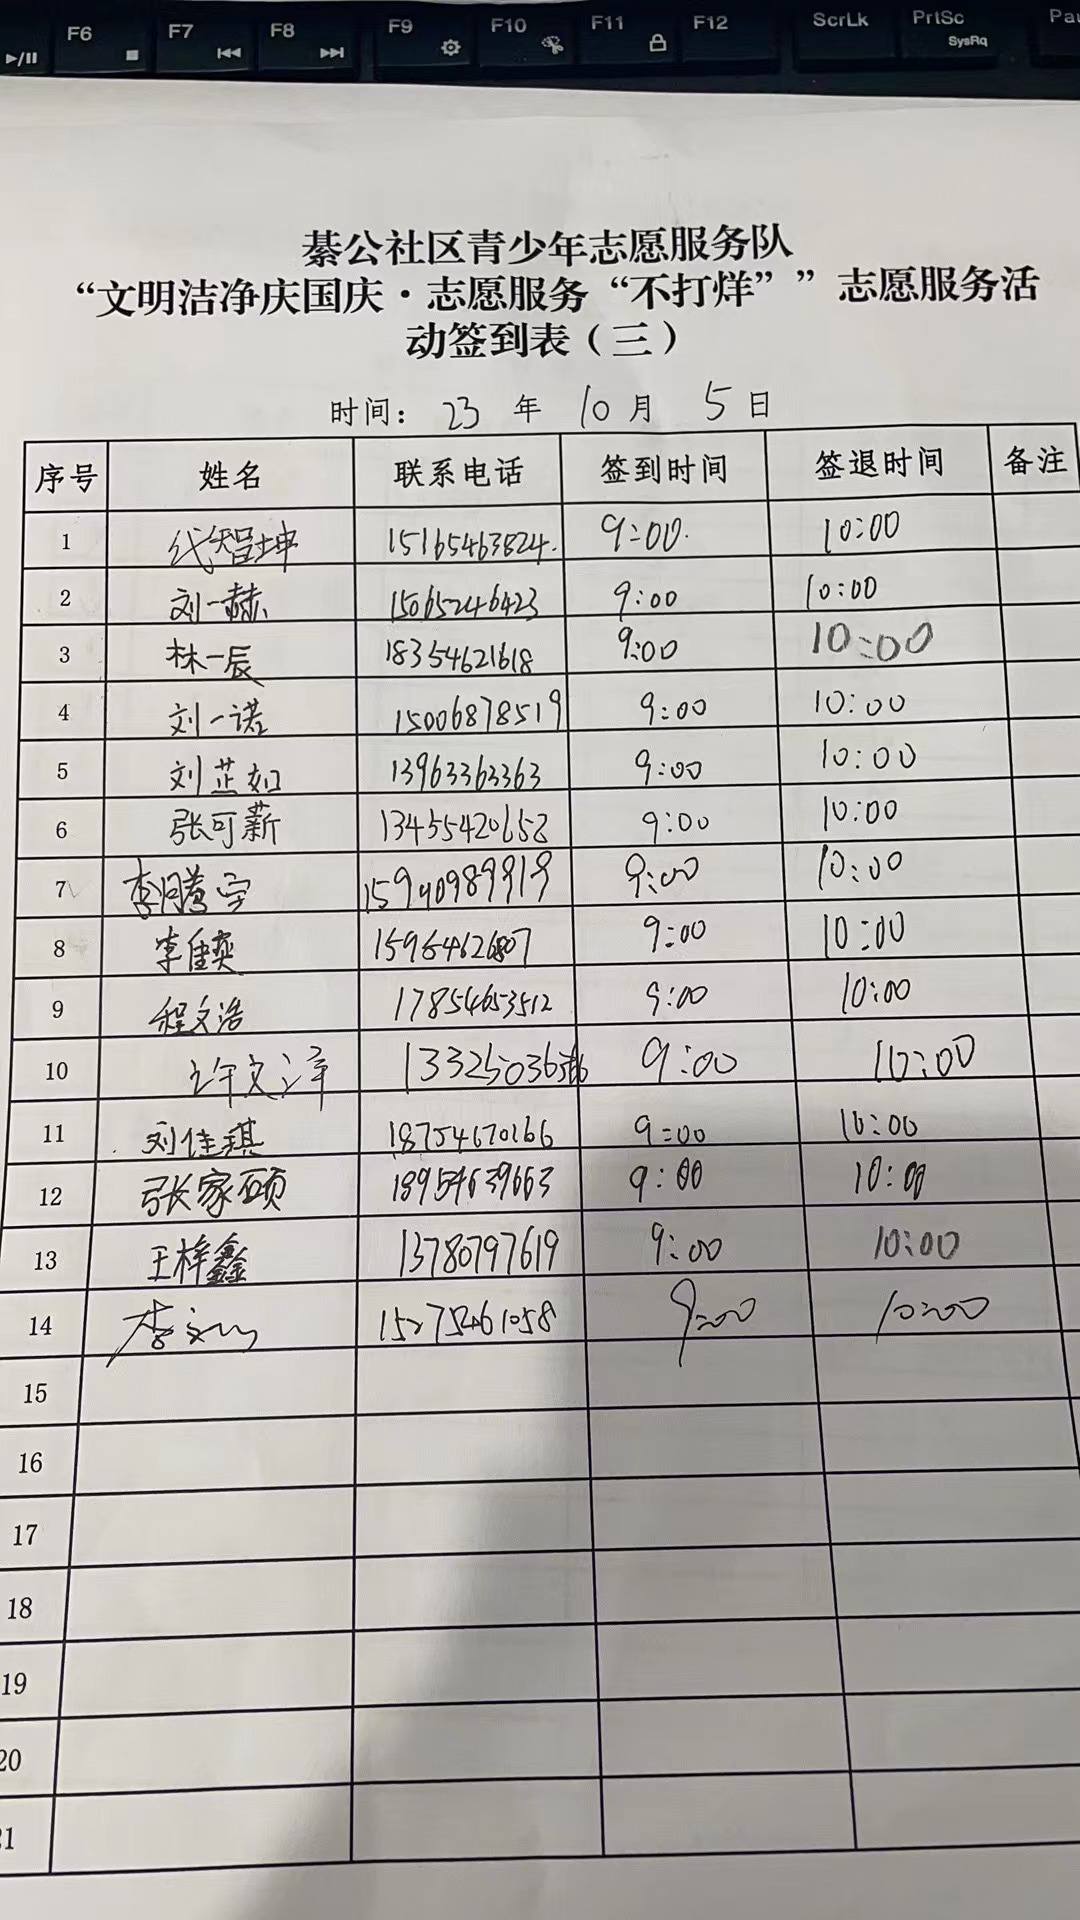 F6 F7 F8 F9 F10 F11 F12 ScrLk PrtSc Pau
SysRq
綦公社区青少年志愿服务队
“文明洁净庆国庆·志愿服务“不打烊””志愿服务活
动签到表（三）
时间： 23 年 10 月 5 日
序号 姓名 联系电话 签到时间 签退时间 备注
1 代智坤 15165463824. 9:00. 10:00
2 刘一赫 15065246423 9:00 10:00
3 林一辰 18354621618 9:00 10:00
4 刘一诺 15006878519 9:00 10:00
5 刘芷如 13963363363 9:00 10:00
6 张可薪 13455420658 9:00 10:00
7 李腾宇 9:00 10:00
8 李佳奕 9:00 10:00
9 程文浩 17854653512 9:00 10:00
10 许文泽 9:00 10:00
11 刘佳琪 9:00 10:00
12 张家硕 18954639663 9:00 10:00
13 王梓鑫 13780797619 9:00 10:00
14 李文 15275461058 9:00 10:00
15
16
17
18
19
20
21